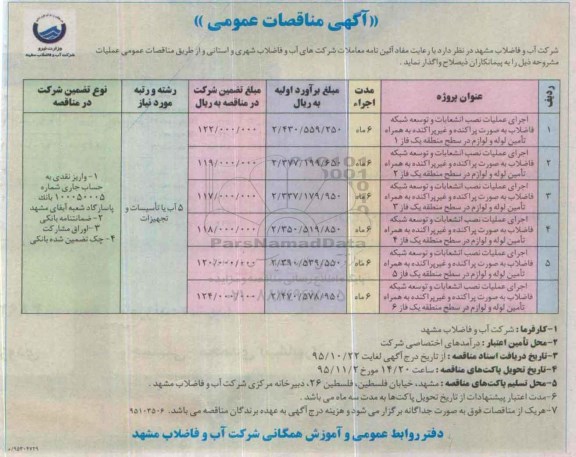 «آگهی مناقصات عمومی»
وزارت نیرو
شرکت آب و فاضلاب مشهد
شرکت آب و فاضلاب مشهد در نظر دارد با رعایت مفاد آئین نامه معاملات شرکت های آب و فاضلاب شهری و استانی و از طریق مناقصات عمومی عملیات
مشروحه ذیل را به پیمانکاران ذیصلاح واگذار نماید.
ردیف
عنوان پروژه
مدت اجراء
مبلغ برآورد اولیه به ریال
مبلغ تضمین شرکت در مناقصه به ریال
رشته و رتبه مورد نیاز
نوع تضمین شرکت در مناقصه
۱
اجرای عملیات نصب انشعابات و توسعه شبکه
فاضلاب به صورت پراکنده و غیرپراکنده به همراه
تأمین لوله و لوازم در سطح منطقه یک فاز ۱
۶ ماه
۲/۴۳۰/۵۵۹/۲۵۰
۱۲۲/۰۰۰/۰۰۰
۲
اجرای عملیات نصب انشعابات و توسعه شبکه
فاضلاب به صورت پراکنده و غیرپراکنده به همراه
تأمین لوله و لوازم در سطح منطقه یک فاز ۲
۶ ماه
۱۱۹/۰۰۰/۰۰۰
۳
اجرای عملیات نصب انشعابات و توسعه شبکه
فاضلاب به صورت پراکنده و غیرپراکنده به همراه
تأمین لوله و لوازم در سطح منطقه یک فاز ۳
۶ ماه
۲/۳۳۷/۱۷۹/۹۵۰
۱۱۷/۰۰۰/۰۰۰
۴
اجرای عملیات نصب انشعابات و توسعه شبکه
فاضلاب به صورت پراکنده و غیرپراکنده به همراه
تأمین لوله و لوازم در سطح منطقه یک فاز ۴
۶ ماه
۲/۳۵۰/۵۱۹/۸۵۰
۱۱۸/۰۰۰/۰۰۰
۵
اجرای عملیات نصب انشعابات و توسعه شبکه
فاضلاب به صورت پراکنده و غیرپراکنده به همراه
تأمین لوله و لوازم در سطح منطقه یک فاز ۵
۶ ماه
۲/۳۹۰/۵۳۹/۵۵۰
۱۲۰/۰۰۰/۰۰۰
اجرای عملیات نصب انشعابات و توسعه شبکه
فاضلاب به صورت پراکنده و غیرپراکنده به همراه
تأمین لوله و لوازم در سطح منطقه یک فاز ۶
۶ ماه
۲/۴۷۰/۵۷۸/۹۵۰
۱۲۴/۰۰۰/۰۰۰
۵ آب یا تأسیسات و
تجهیزات
۱- واریز نقدی به
حساب جاری شماره
۱۰۰۰۵۰۰۰۵ بانک
پاسارگاد شعبه آبفای مشهد
۲- ضمانتنامه بانکی
۳- اوراق مشارکت
۴- چک تضمین شده بانکی
ParsNamadData
۱-کارفرما: شرکت آب و فاضلاب مشهد
۲-محل تأمین اعتبار: درآمدهای اختصاصی شرکت
۳-تاریخ دریافت اسناد مناقصه: از تاریخ درج آگهی لغایت ۹۵/۱۰/۲۲
۴-تاریخ تحویل پاکت‌های مناقصه: ساعت ۱۴/۲۰ مورخ ۹۵/۱۱/۲
۵-محل تسلیم پاکت‌های مناقصه: مشهد، خیابان فلسطین، فلسطین ۲۶، دبیرخانه مرکزی شرکت آب و فاضلاب مشهد.
۶-مدت اعتبار پیشنهادات از تاریخ تحویل پاکت‌ها به مدت سه ماه می باشد.
۷-هریک از مناقصات فوق به صورت جداگانه برگزار می شود و هزینه درج آگهی به عهده برندگان مناقصه می باشد. ۹۵۱۰۳۵۰۶
دفتر روابط عمومی و آموزش همگانی شرکت آب و فاضلاب مشهد